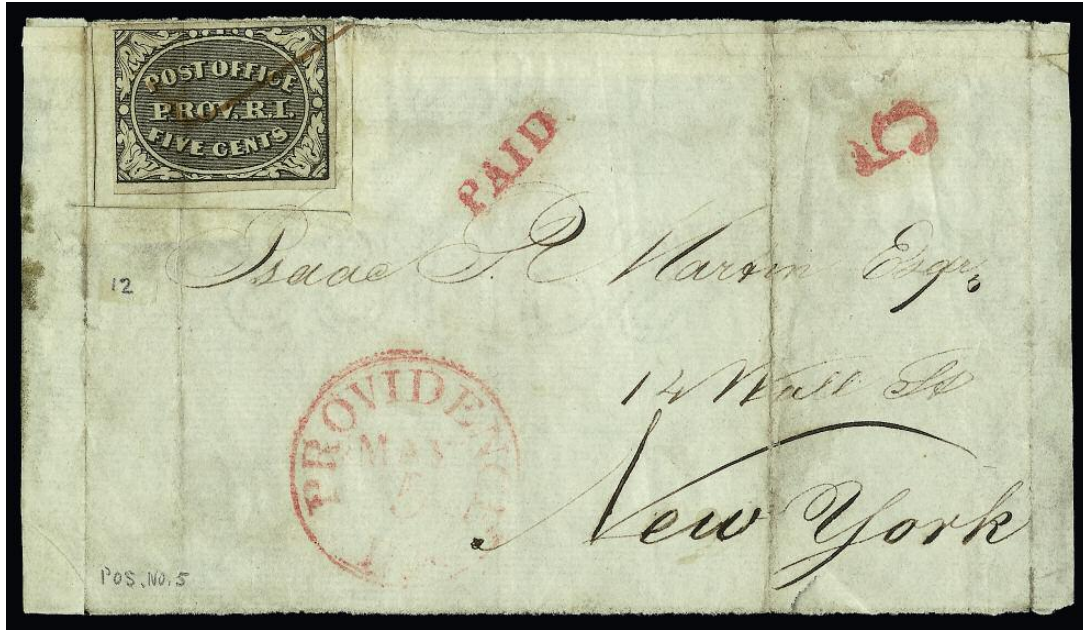 POST OFFICE
PROV. R.I.
FIVE CENTS
PAID
5
Isaac
Martin Esqr,
12
14 Wall St
New York
PROVIDENCE
MAY
POS. NO. 5